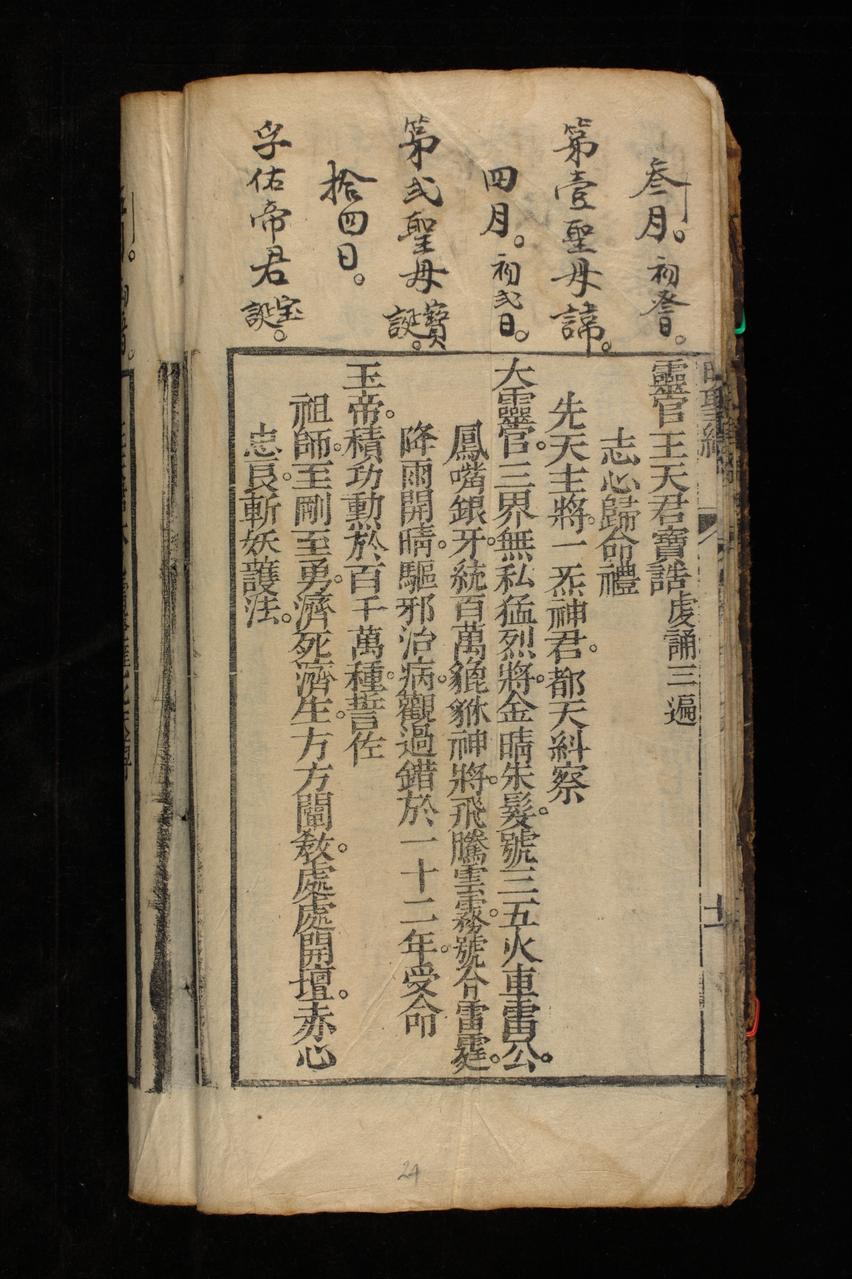 叄月。初叄日。
第壹聖母諱。
四月。初弍日。
第弍聖母寶誕。
拾四日。
孚佑帝君宝誕。
靈官王天君寶誥虔誦三遍
志心歸命禮
先天主將。一炁神君。都天糾察
大靈官。三界無私猛烈將。金睛朱髮。號三五火車雷公。
鳳嘴銀牙。統百萬貔貅神將。飛騰雲霧。號令雷霆。
降雨開晴。驅邪治病。觀過錯於一十二年。受命
玉帝。積功勲於百千萬種。誓佐
祖師。至剛至勇。濟死濟生。方方闡教。處處開壇。赤心
忠良。斬妖護法。
十一
24